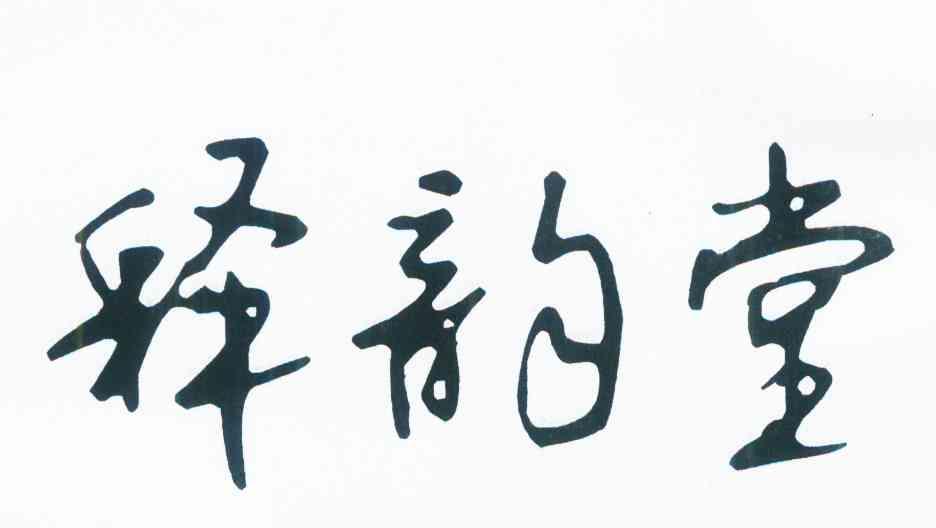 释韵堂